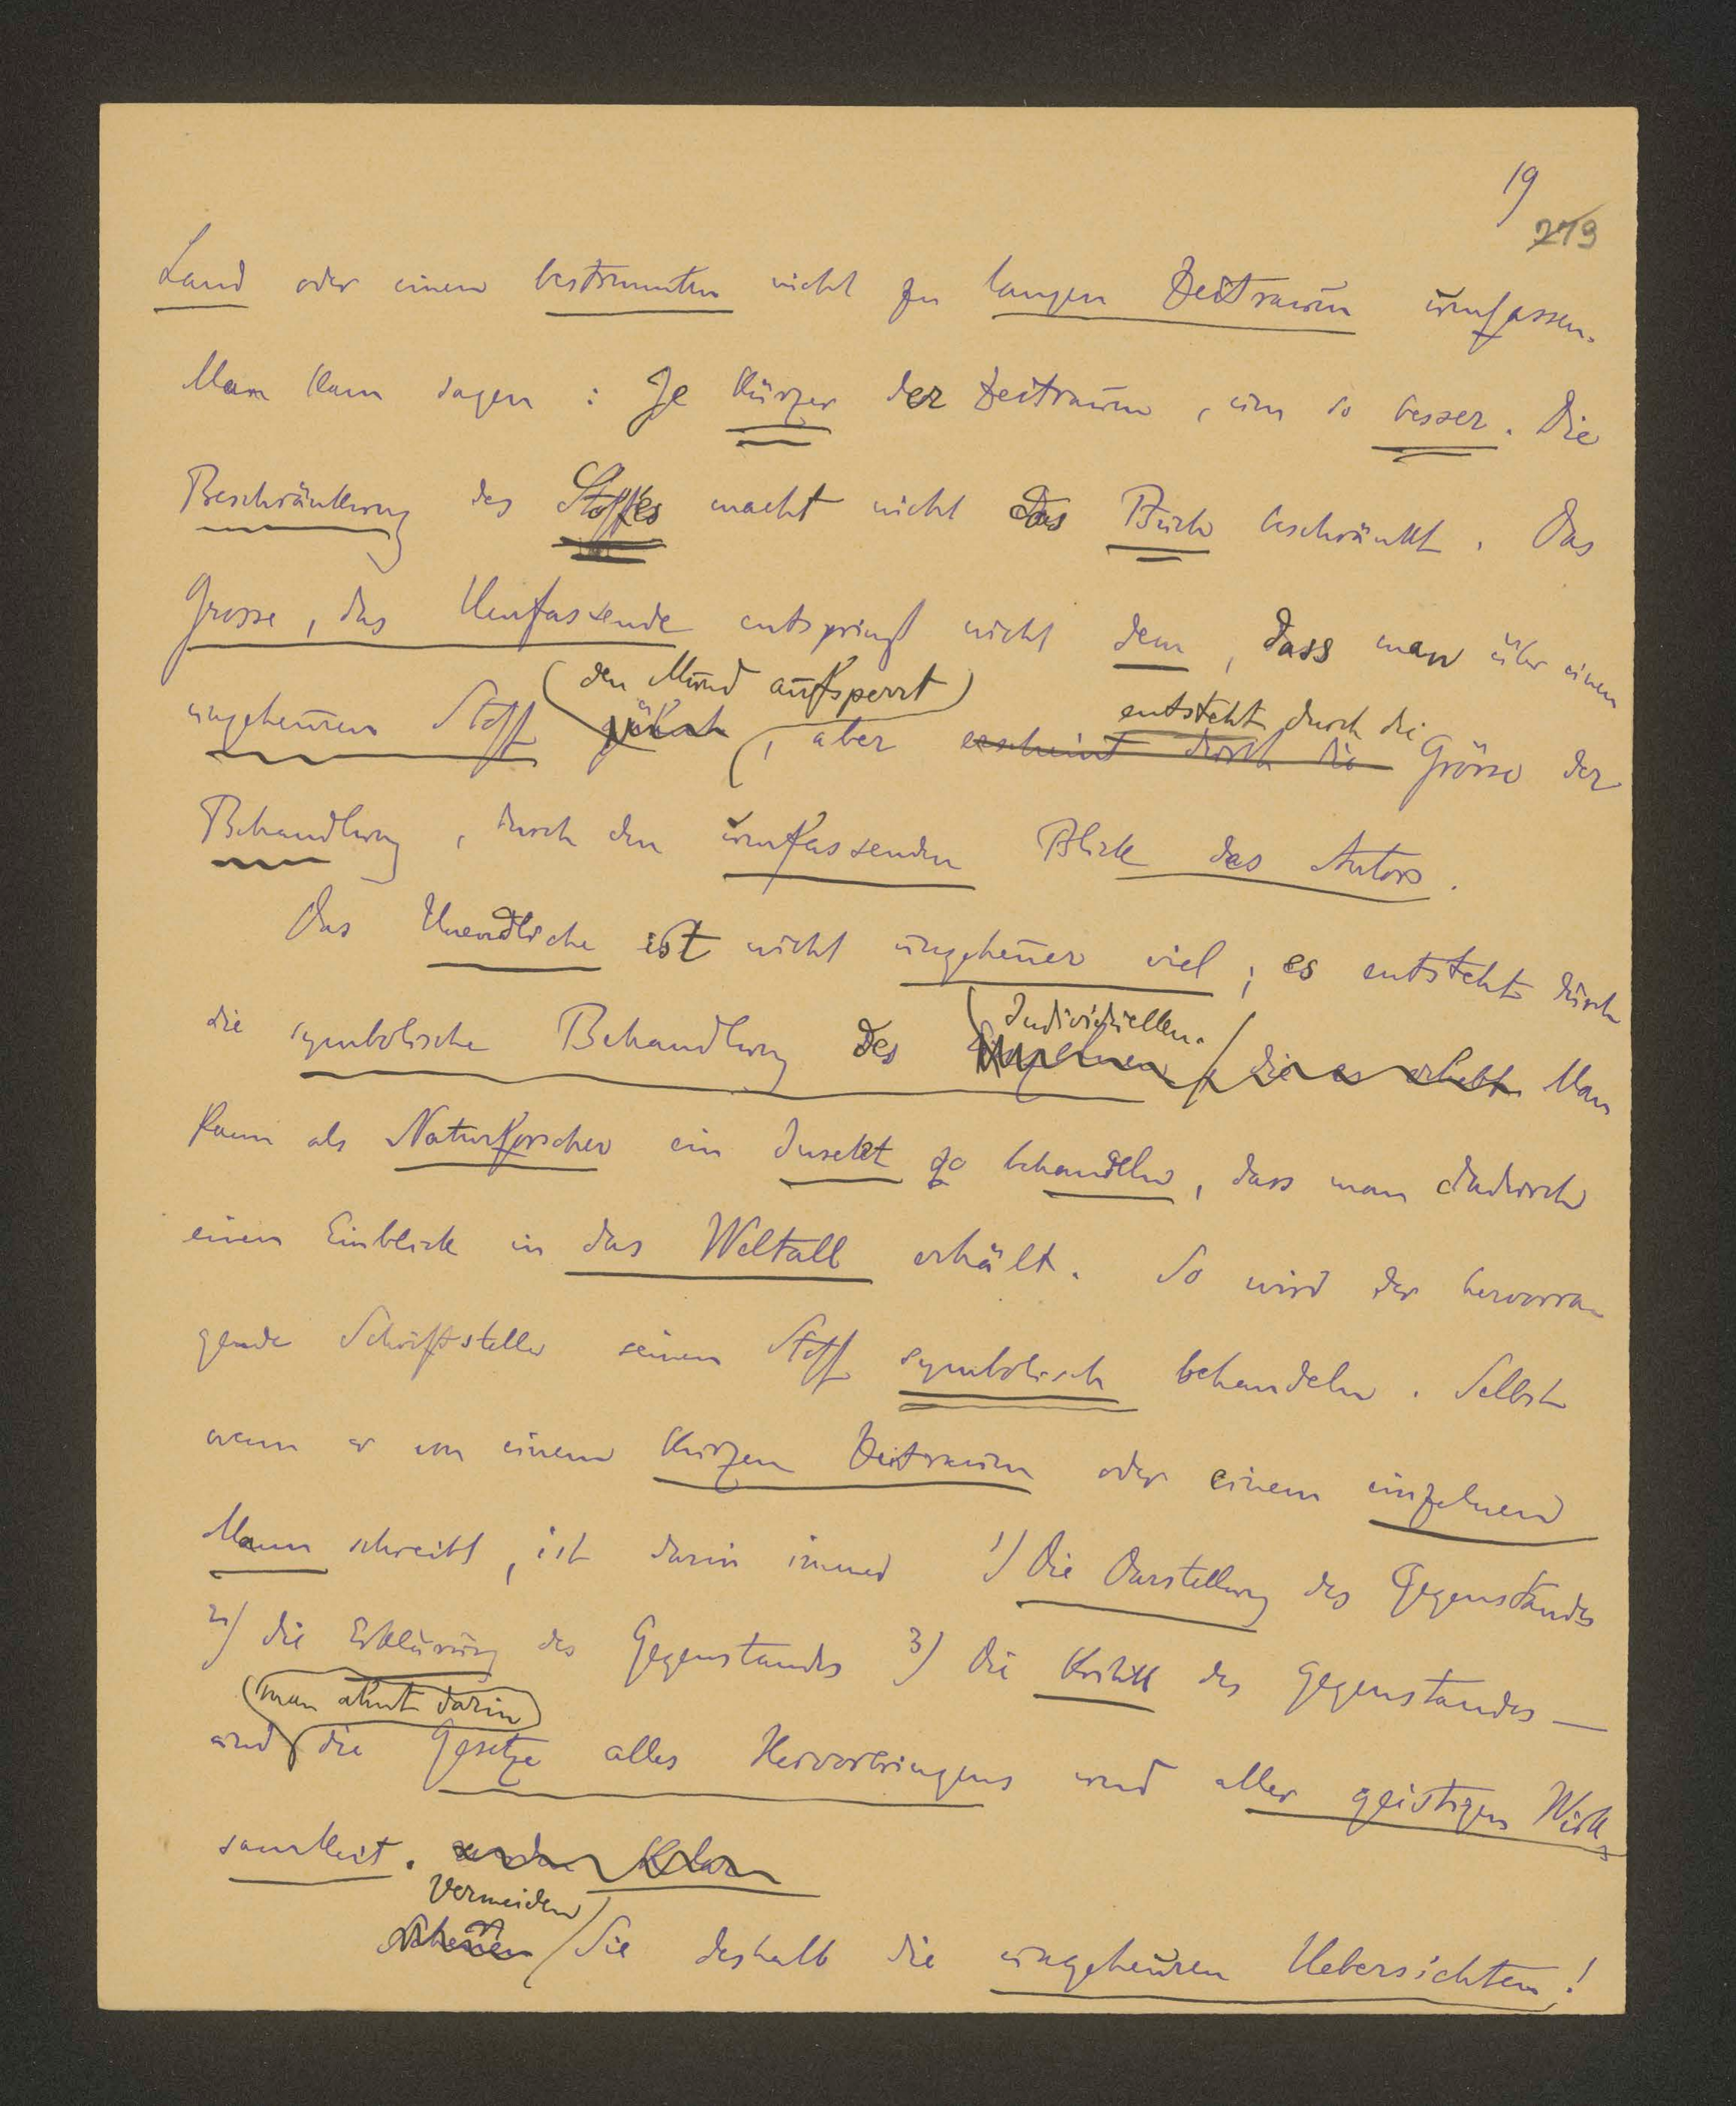 19
219
Land oder einen bestimmten nicht zu langen Zeitraum umfassen.
Man kann sagen : Je kürzer der Zeitraum, um so besser. Die
Beschränkung des Stoffes macht nicht das Buch beschränkt. Das
Grosse, das Umfassende entspringt nicht dem, dass man über einen
den Mund aufsperrt entsteht durch die
ungeheuren Stoff , aber erscheint durch die Grösse der
Behandlung, durch den umfassenden Blick des Autors.
Das Unendliche ist nicht ungeheuer viel ; es entsteht durch
Individuellen.
die symbolische Behandlung des Einzelnen, die es erhebt. Man
kann als Naturforscher ein Insekt so behandeln, dass man dadurch
einen Einblick in das Weltall erhält. So wird der hervorra-
gende Schriftsteller seinen Stoff symbolisch behandeln. Selbst
wenn er von einem kurzen Zeitraum oder einem einzelnen
Mann schreibt, ist darin immer 1) Die Darstellung des Gegenstandes
2) die Erklärung des Gegenstandes 3) Die Kritik des Gegenstandes —
man ahnt darin
und die Gesetze alles Hervorbringens und aller geistigen Wirk-
samkeit.
Vermeiden
Scheuen Sie deshalb die ungeheuren Uebersichten!